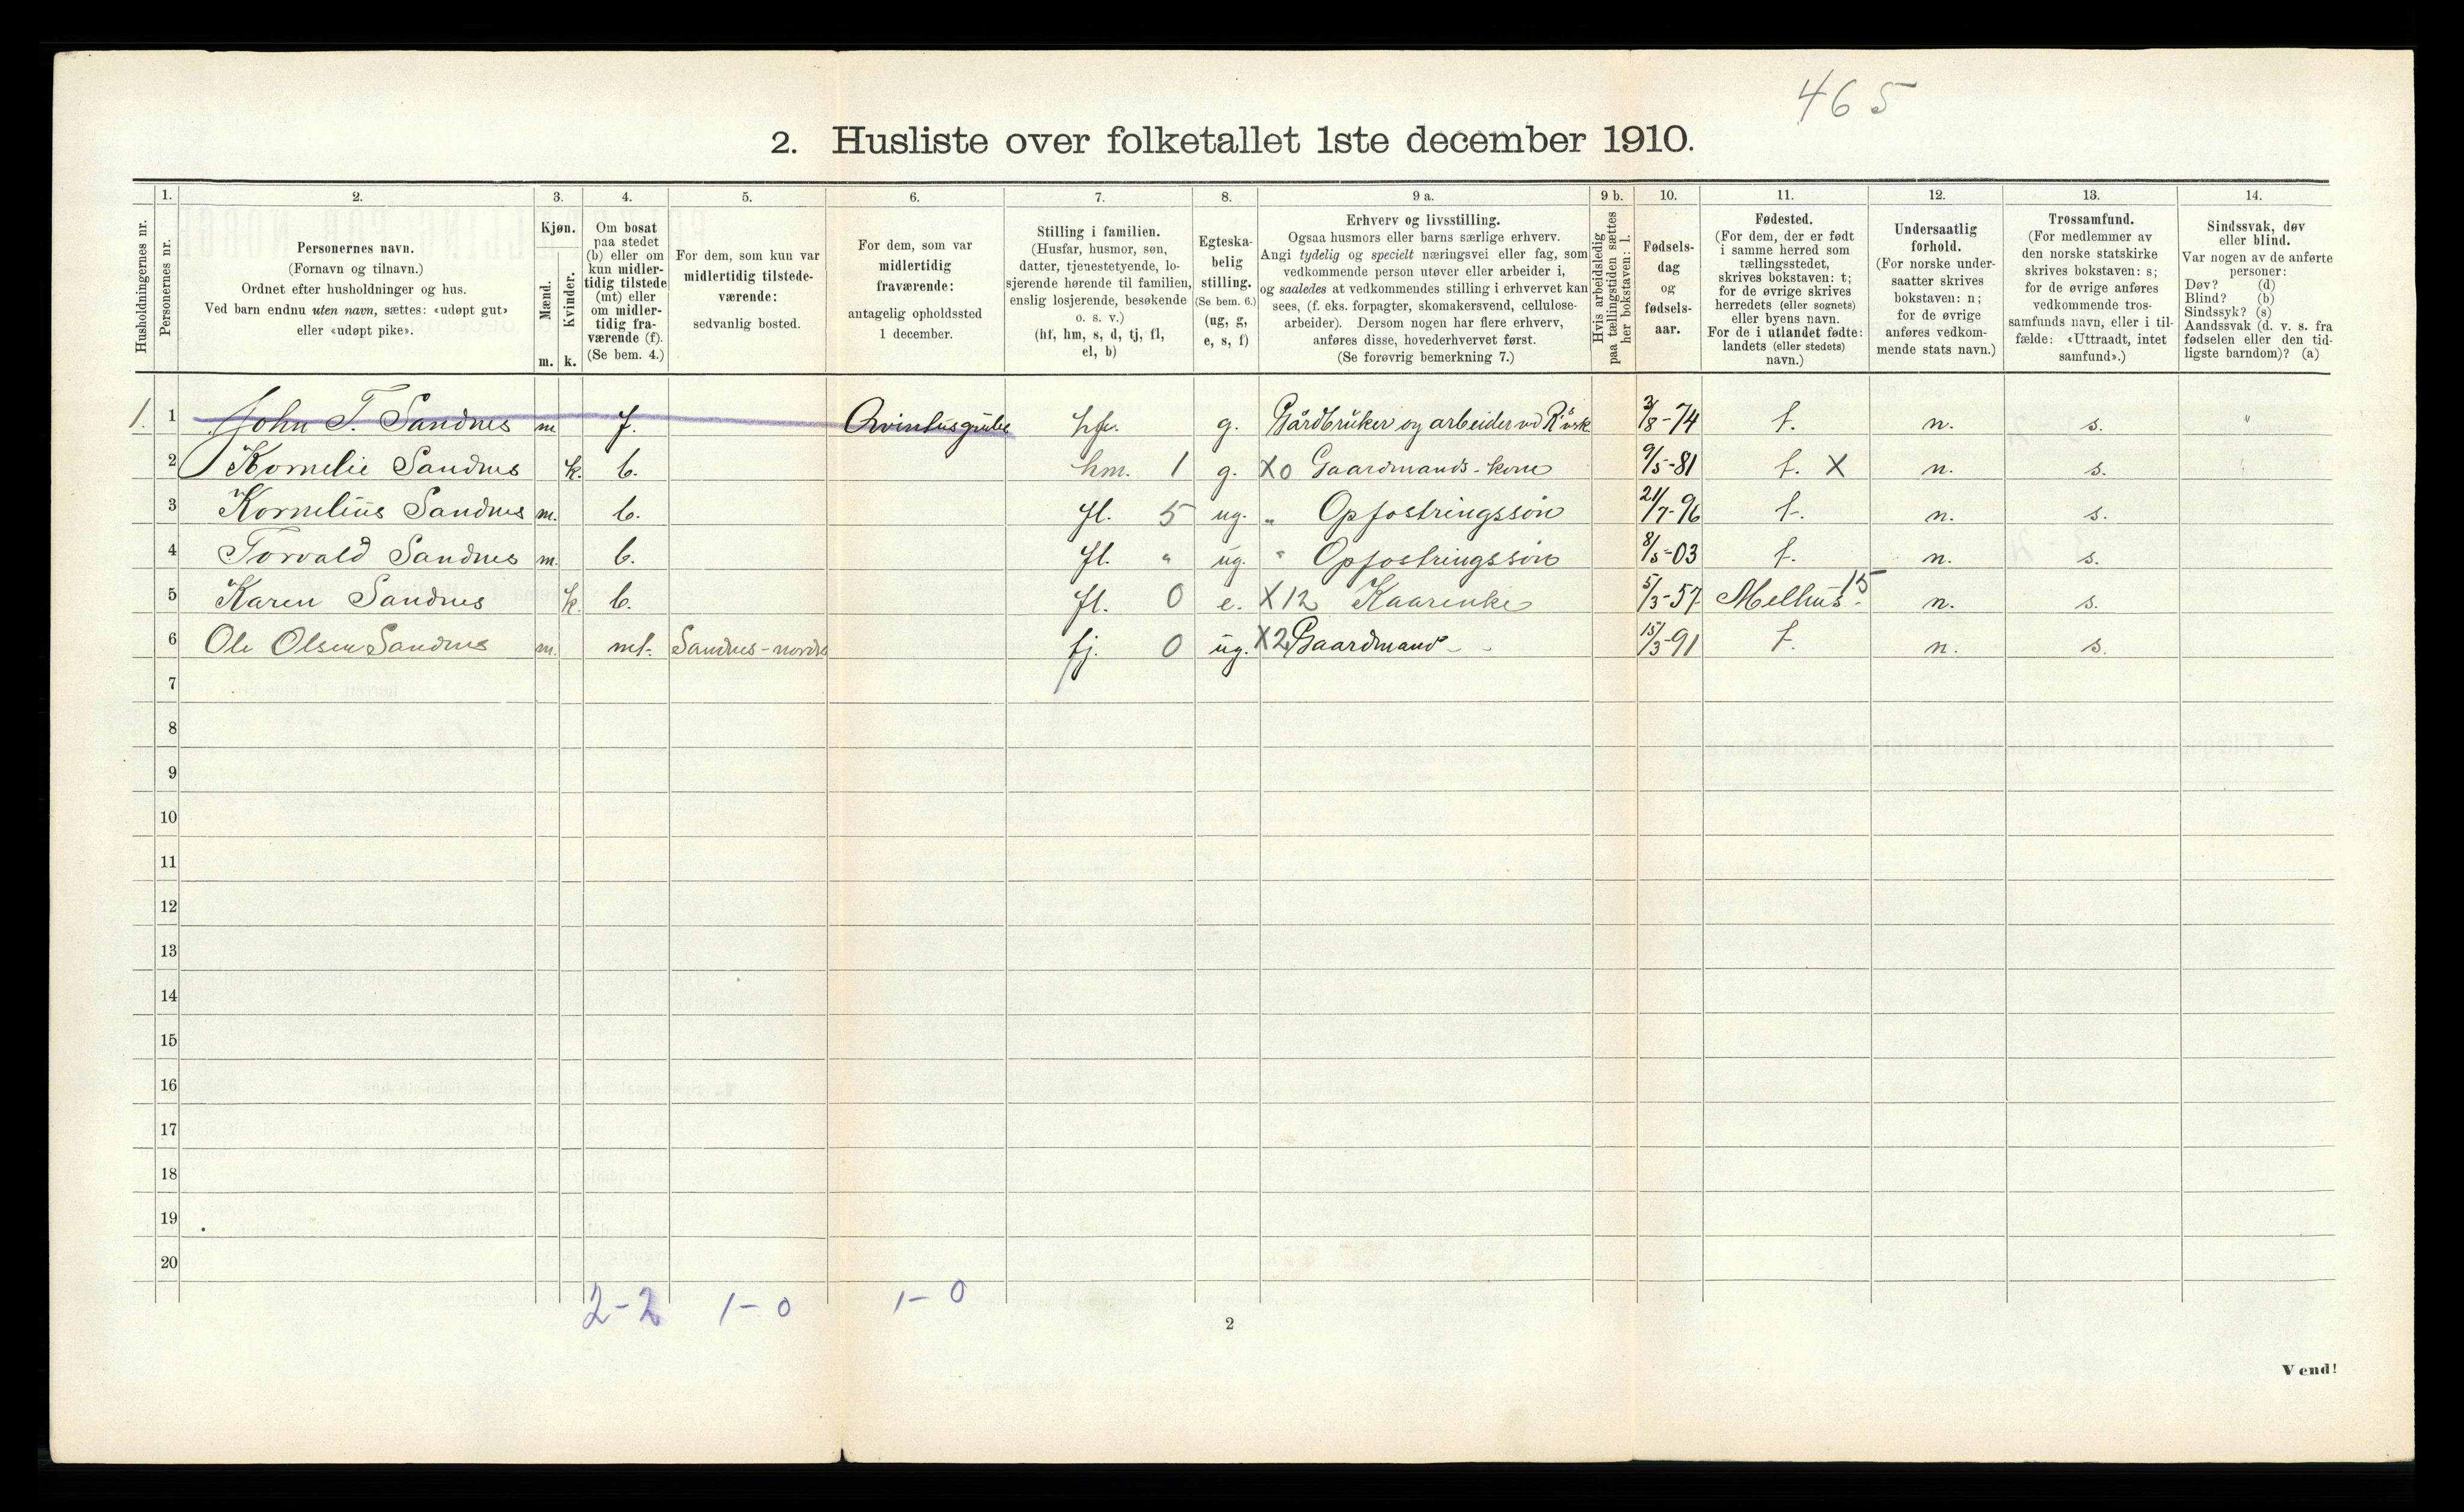 465
2. Husliste over folketallet 1ste december 1910.
Husholdningernes nr.
1.
Personernes nr.
2.
Personernes navn.
(Fornavn og tilnavn.)
Ordnet efter husholdninger og hus.
Ved barn endnu uten navn, sættes: «udøpt gut»
eller «udøpt pike».
3.
Kjøn.
Mænd.
Kvinder.
m. k.
4.
Om bosat
paa stedet
(b) eller om
kun midler-
tidig tilstede
(mt) eller
om midler-
tidig fra-
værende (f).
(Se bem. 4.)
5.
For dem, som kun var
midlertidig tilstede-
værende:
sedvanlig bosted.
6.
For dem, som var
midlertidig
fraværende:
antagelig opholdssted
1 december.
7.
Stilling i familien.
(Husfar, husmor, søn,
datter, tjenestetyende, lo-
sjerende hørende til familien,
enslig losjerende, besøkende
o. s. v.)
(hf, hm, s, d, tj, fl,
el, b)
8.
Egteska-
belig
stilling.
(Se bem. 6.)
(ug, g,
e, s, f)
9 a.
Erhverv og livsstilling.
Ogsaa husmors eller barns særlige erhverv.
Angi tydelig og specielt næringsvei eller fag, som
vedkommende person utøver eller arbeider i,
og saaledes at vedkommendes stilling i erhvervet kan
sees, (f. eks. forpagter, skomakersvend, cellulose-
arbeider). Dersom nogen har flere erhverv,
anføres disse, hovederhvervet først.
(Se forøvrig bemerkning 7.)
9 b.
Hvis arbeidsledig
paa tællingstiden sættes
her bokstaven: l.
10.
Fødsels-
dag
og
fødsels-
aar.
11.
Fødested.
(For dem, der er født
i samme herred som
tællingsstedet,
skrives bokstaven: t;
for de øvrige skrives
herredets (eller sognets)
eller byens navn.
For de i utlandet fødte:
landets (eller stedets)
navn.)
12.
Undersaatlig
forhold.
(For norske under-
saatter skrives
bokstaven: n;
for de øvrige
anføres vedkom-
mende stats navn.)
13.
Trossamfund.
(For medlemmer av
den norske statskirke
skrives bokstaven: s;
for de øvrige anføres
vedkommende tros-
samfunds navn, eller i til-
fælde: «Uttraadt, intet
samfund».)
14.
Sindssvak, døv
eller blind.
Var nogen av de anførte
personer:
Døv? (d)
Blind? (b)
Sindssyk? (s)
Aandssvak (d. v. s. fra
fødselen eller den tid-
ligste barndom)? (a)
1. 1 John T. Sandnes m. f. hf. g. Gårdbruker og arbeider 3/8-74 t. n. s. "
2 Kornelie Sandnes k. b. hm. 1 g. X0 Gaardmands-kone 9/5-81 t. X n. s.
3 Kornelius Sandnes m. b. fl. 5 ug. " Opfostringssøn 21/7-96 t. n. s.
4 Torvald Sandnes m. b. fl. " ug. " Opfostringssøn 8/5-03 t. n. s.
5 Karen Sandnes k. b. fl. 0 e. X12 Kaarenke 5/3-57 Melhus. 15 n. s.
6 Ole Olsen Sandnes m. mt. Sandnes-nordre tj. 0 ug. X2 Gaardmand 15/3-91 t. n. s.
7
8
9
10
11
12
13
14
15
16
17
18
19
20
2-2 1-0 1-0
2
Vend!